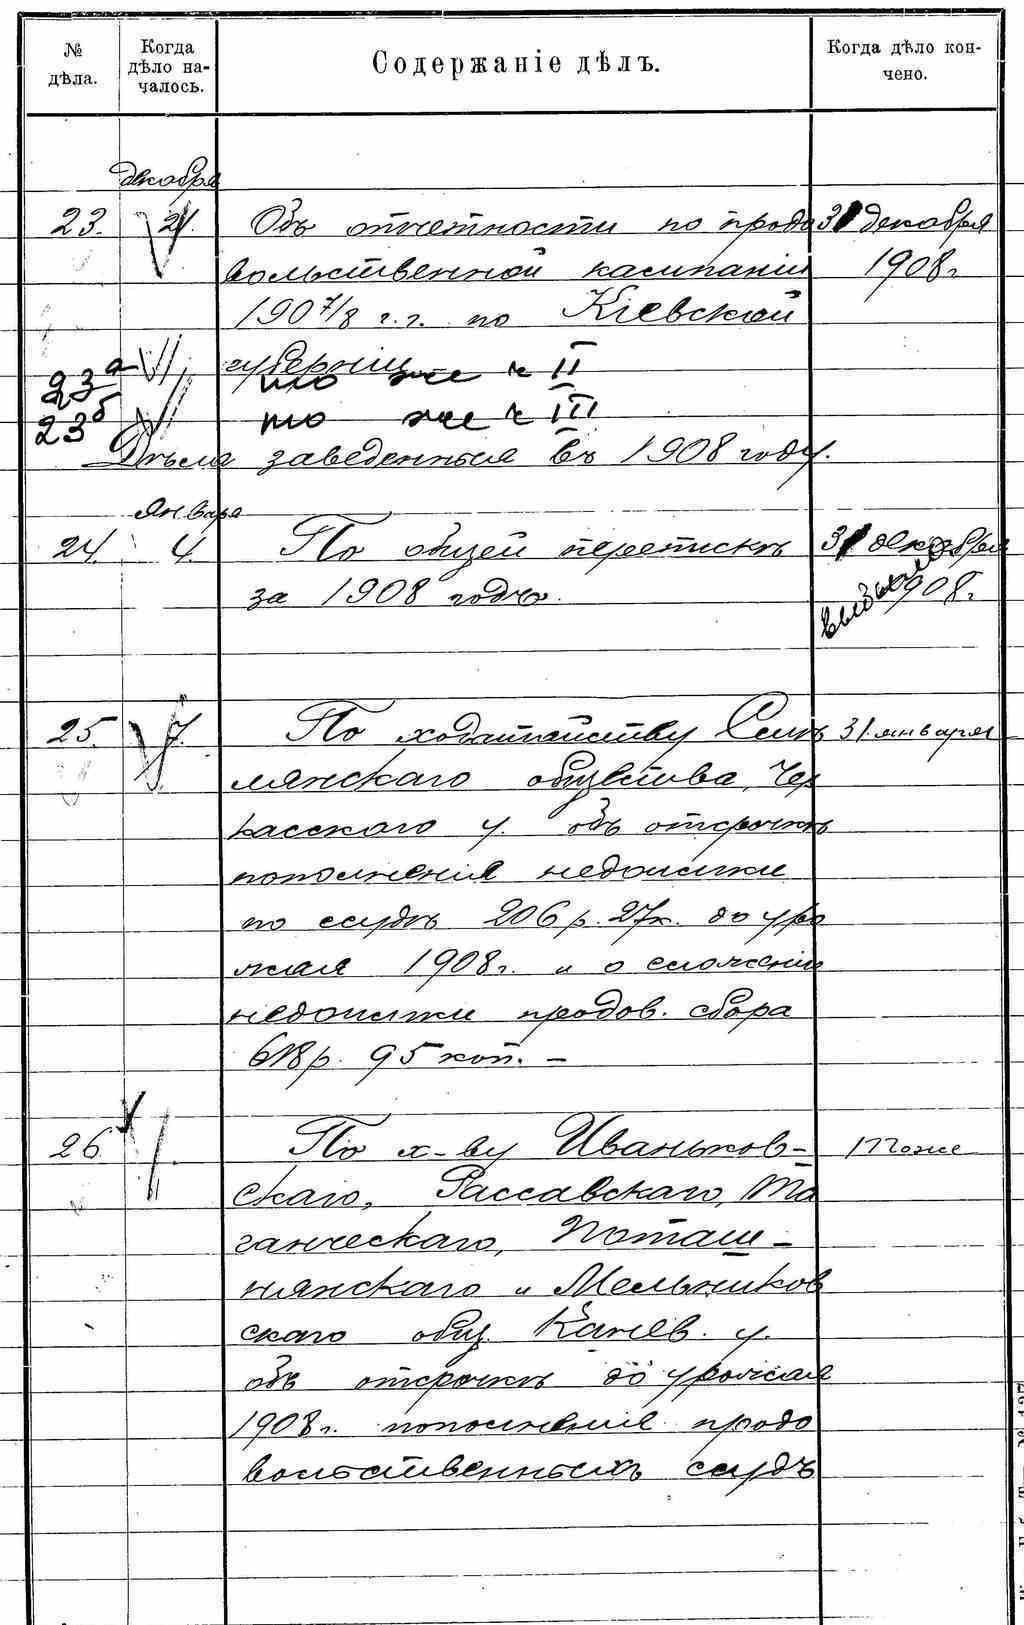 № дѣла.
Когда дѣло началось.
Содержаніе дѣлъ.
Когда дѣло кончено.
декабря
23. 21. Объ отчетности по продо 31 декабря
вольственной кампаніи 1908 г.
1907/8 г.г. по Кіевской
губерніи
23а то же ч II
23б то же ч III
Дѣла заведенныя въ 1908 году.
января
24. 4. По общей перепискѣ 31 декабря
за 1908 годъ. 1908 г.
25. 7. По ходатайству Селк
мянскаго общества, Чер 31 января
касскаго у. объ отсрочкѣ
пополненія недоимки
по ссудѣ 206 р. 27 к. до уро
жая 1908 г. и о сложеніи
недоимки продов. сбора
618 р. 95 коп. –
26. По х-ву Иваньков- тоже
скаго, Рассавскаго, Та
ганческаго, Поташ-
нянскаго и Мельников
скаго общ. Канев. у.
объ отсрочкѣ до урожая
1908 г. пополненія продо
вольственныхъ ссудъ